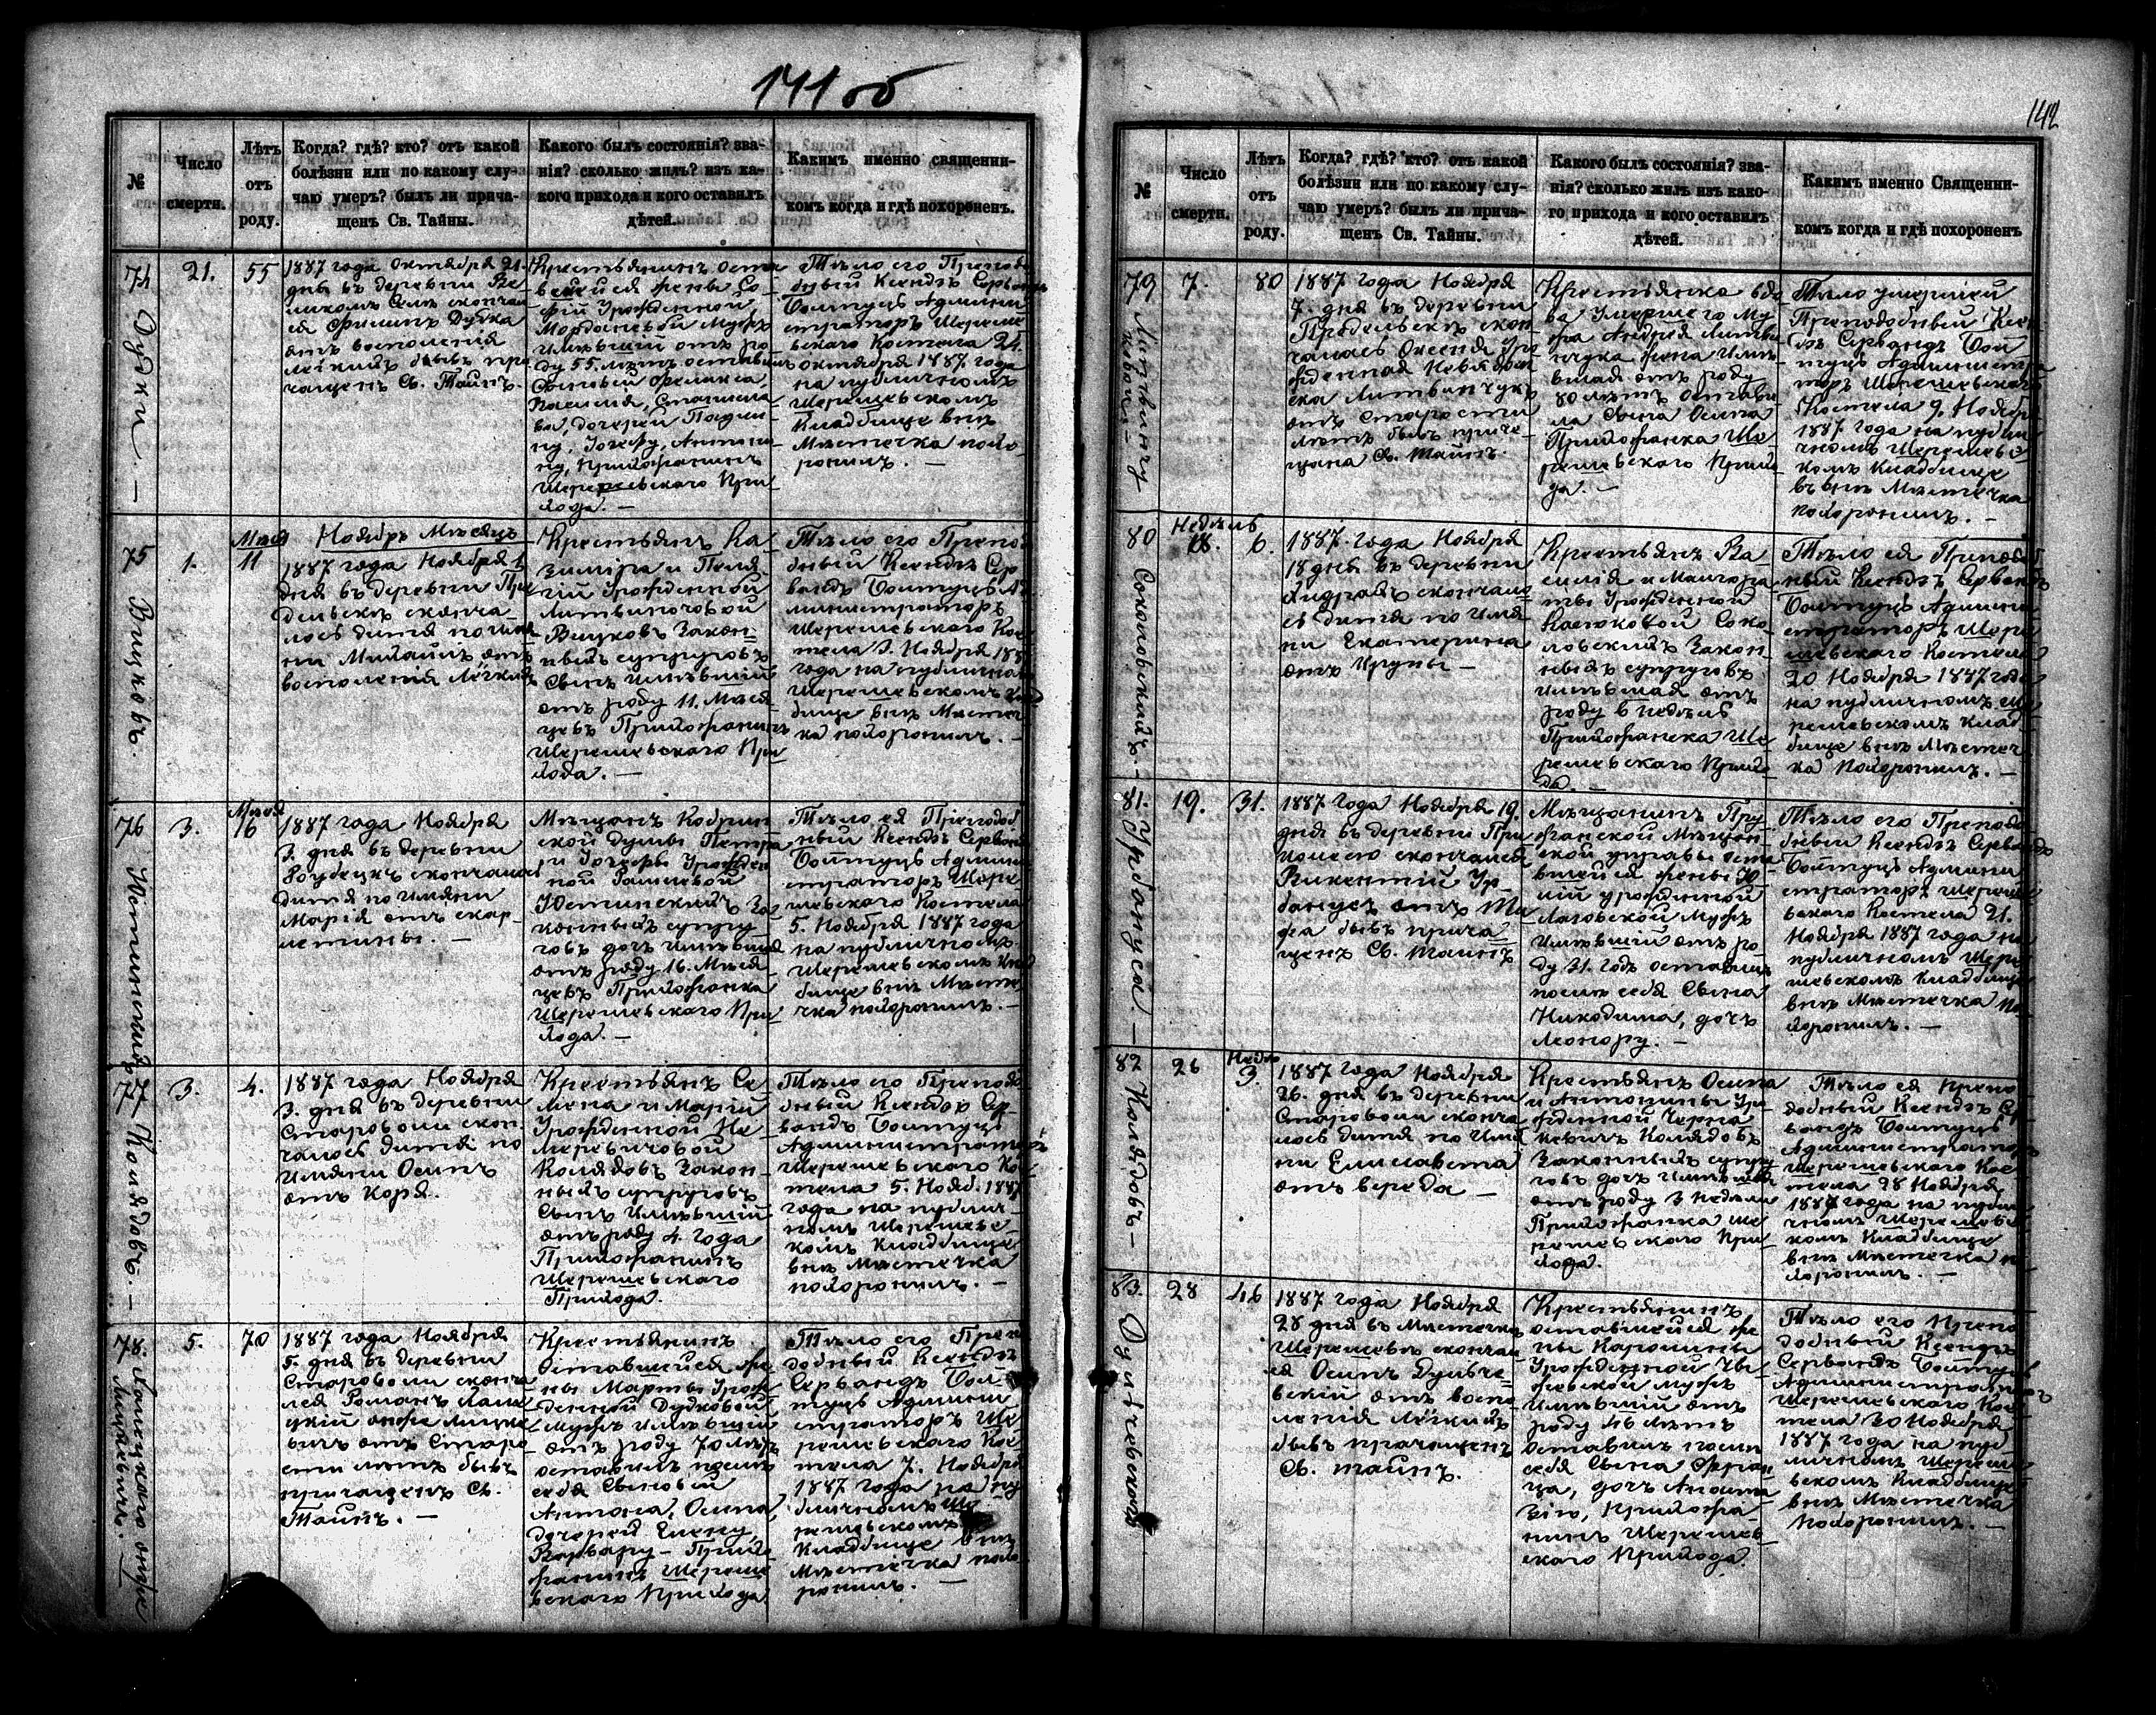 141 об
№
Число
смерти.
Лѣтъ
отъ
роду.
Когда? гдѣ? кто? отъ какой
болѣзни или по какому слу-
чаю умеръ? былъ ли прича-
щенъ Св. Тайны.
Какого былъ состоянія? зва-
нія? сколько жилъ? изъ ка-
кого прихода и кого оставилъ
дѣтей.
Какимъ именно священни-
комъ когда и гдѣ похороненъ.
74
Дубки. —
21.
55
1887 года Октября 21.
дня въ деревни Ве-
ликомъ Селѣ скончал
ся Филипъ Дубка
отъ восполенія
лёгкихъ бывъ при
чащенъ Св. Тайнъ.
Крестьянинъ оста
вшейся жены Со-
фіи Урожденной
мужъ
имѣвшій отъ ро
ду 55. лѣтъ оставилъ
Сыновей Феликса,
Василія, Станисла
ва, дочерей Паули
ну, Іозефу, Антони
ну, Прихожанинъ
Шерешевского При
хода. —
Тѣло его Преподо
бный Ксендзъ Сервандъ
Войтуць Админи
страторъ Шереше
вского Костела 24.
октября 1887. года
на публичномъ
Шерешевскомъ
Кладбище внѣ
Мѣстечка похо-
ронилъ. —
75
Вицковъ.
1.
Мѣсяц
11
Ноябрь Мѣсяцъ
1887 года Ноября 1.
дня въ деревни При
дельскъ сконча
лось дитя по име
ни Михаилъ отъ
восполенія Лёгкихъ
Крестьянъ Ка
зиміра и Пела
гіи Урожденной
Литвиновой
Вицковъ Закон=
ныхъ супруговъ
Сынъ имѣвшій
отъ роду 11. Мѣся
цевъ Прихожанинъ
Шерешевского При
хода. —
Тѣло его Препо
бный Ксендзъ Сер
вандъ Войтуць Ад
министраторъ
Шерешевского Кос
тела 3. Ноября 188
года на публичномъ
Шерешевскомъ Клад
бище внѣ Мѣстеч
ка похоронилъ. —
76
Ютинскихъ
3.
Мѣсяц
16
1887 года Ноября
3. дня въ деревни
скончалось
дитя по имяни
Марія отъ скар-
летины. —
Мѣщанъ Кобрин
ской Думы Петра
и Іозефы Урожден
ной
Ютинскихъ За
конныхъ супру
говъ дочъ имѣвшая
отъ роду 16. Мѣся
цевъ Прихожанка
Шерешевского При
хода. —
Тѣло ея Преподоб
ный Ксендзъ Сервандъ
Войтуць Админи
страторъ Шере
шевского Костела
5. Ноября 1887 года
на публичномъ
Шерешевскомъ Клад
бище внѣ Мѣсте
чка похоронилъ. —
77
Колядовъ. —
3.
4.
1887 года Ноября
3. дня въ деревни
Староволи скон
чалось дитя по
имяни Осипъ
отъ Коря.
Крестьянъ Се
мена и Маріи
Урожденной Не
меровичовой
Колядовъ Закон-
ныхъ супруговъ
Сынъ имѣвшій
отъ роду 4. года
Прихожанинъ
Шерешевского
Прихода.
Тѣло его Преподо
бный Ксендзъ Сер
вандъ Войтуць
Администраторъ
Шерешевского Ко
тела 5. Нояб. 1887
года на публич
номъ Шерешевс
комъ Кладбище
внѣ Мѣстечка
похоронилъ. —
78.
5.
70
1887 года Ноября
5. дня въ деревни
Староволи сконча
лся Романъ
отъ Старо
сти лѣтъ бывъ
причащенъ Св.
Тайнъ. —
Крестьянинъ
Оставшейся же
ны Марты Урож
денной Дудковой
Мужъ имѣвшій
отъ роду 70 лѣтъ
оставилъ послѣ
себя Сыновей
Антона, Осипа,
дочерей Елену,
Варвару — Прихо
жанинъ Шереше
вского Прихода
Тѣло его Препо
добный Ксендзъ
Сервандъ Вой
туць Админи
страторъ Ше
решевского Кос
тела 7. Ноября
1887 года на пу
бличномъ Ше
решевскомъ
Кладбище внѣ
Мѣстечка похо
ронилъ. —
142
№
Число
смерти.
Лѣтъ
отъ
роду.
Когда? гдѣ? кто? отъ какой
болѣзни или по какому слу-
чаю умеръ? былъ ли прича-
щенъ Св. Тайны.
Какого былъ состоянія? зва-
нія? сколько жилъ изъ како-
го прихода и кого оставилъ
дѣтей.
Какимъ именно Священни-
комъ когда и гдѣ похороненъ
79
Литвинчу
ковой. —
7.
80
1887. года Ноября
7. дня въ деревни
Придельскъ скон
чалась Ксенія Уро
жденная
Литвинчукъ
отъ Старости
лѣтъ бывъ приче-
щена Св. Тайнъ.
Крестьянка вдо
ва Умершего Му
жа Андрея Литви
нчука жена имѣ
вшая отъ роду
80 лѣтъ остави
ла Сына Осипа
Прихожанка Ше
решевского Прихо
да. —
Тѣло умершей
Преподобный Ксен
дзъ Сервандъ Вой
туць Администра
торъ Шерешевского
Костела 9. Ноября
1887 года на публи
чномъ Шерешевс
комъ Кладбище
внѣ Мѣстечка
похоронилъ. —
80
Соколовскихъ. —
18.
Недѣль
6.
1887. года Ноября
18 дня въ деревни
скончало
сь дитя по имя
ни Екатерина
отъ Крупы —
Крестьянъ Ва
силія и Маргора
ты Урожденной
Касюковой Соко
ловскихъ Закон
ныхъ супруговъ
имѣвшая отъ
роду 6 недѣль
Прихожанка Ше
решевского Прихо
да. —
Тѣло ея Преподоб
ный Ксендзъ Сервандъ
Войтуць Админи
страторъ Шере
шевского Костела
20 Ноября 1887 года
на публичномъ Ше
решевскомъ Клад
бище внѣ Мѣстеч
ка Похоронилъ. —
81.
Урбануса. —
19.
31.
1887 года Ноября 19.
дня въ деревни При
скончался
Викентій Ур
банусъ отъ Ти
фа бывъ прича
щенъ Св. Тайнъ
Мѣщанинъ Пру
жанской Мѣщан
ской управы оста
вшейся жены Ю
ліи урожденной
Лазовской мужъ
имѣвшій отъ ро
ду 31. годъ оставилъ
послѣ себя Сына
Никодима, дочъ
Леонору. —
Тѣло его Преподо
бный Ксендзъ Сервандъ
Войтуць Админи
страторъ Шереше
вского Костела 21.
Ноября 1887 года на
публичномъ Шере
шевскомъ Кладбище
внѣ Мѣстечка По
хоронилъ. —
82
Колядовъ —
26
Недѣл
3.
1887 года Ноября
26. дня въ деревни
Староволи сконча
лось дитя по имя
ни Елисавета
отъ вереда —
Крестьянъ Осипа
и Антонины Уро
жденной Черна
кевичъ Колядовъ
Законныхъ супру
говъ дочъ имѣвшая
отъ роду 3 недѣли
Прихожанка Ше
решевского При
хода.
Тѣло ея Препо
добный Ксендзъ Сер
вандъ Войтуць
Администраторъ
Шерешевского Кос
тела 28 Ноября
1887 года на публи
чномъ Шерешевс
комъ Кладбище
внѣ Мѣстечка по
хоронилъ. —
83.
28
46
1887 года Ноября
28 дня въ Мѣстечку
Шерешевъ скончал
ся Осипъ Дульче
вскій отъ воспо
ленія Лёгкихъ
бывъ причащенъ
Св. Тайнъ.
Крестьянинъ
оставшейся же
ны Каролины
Урожденной
мужъ
имѣвшій отъ
роду 46 лѣтъ
оставилъ послѣ
себя Сына Фран
ца, дочъ
Прихожа-
нинъ Шерешев
ского Прихода
Тѣло его Препо
добный Ксендзъ
Сервандъ Войтуць
Администраторъ
Шерешевского Кос
тела 30 Ноября
1887 года на пуб
личномъ Шереше
вскомъ Кладбище
внѣ Мѣстечка
Похоронилъ. —